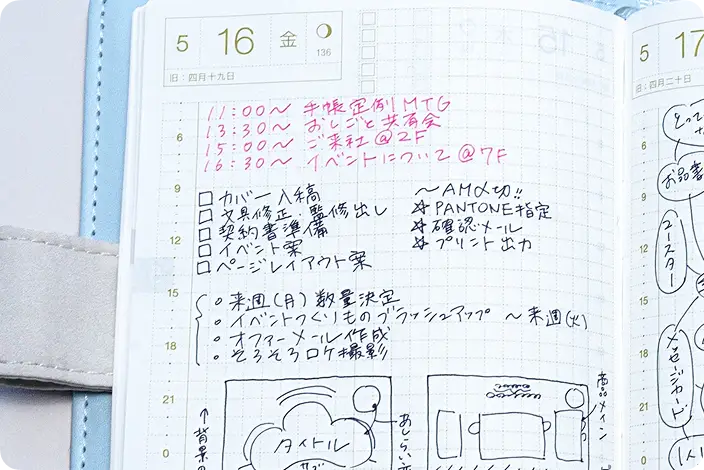 5 16 金 136
旧：四月十九日
11:00〜 手帳定例MTG
13:30〜 おしごと共有会
15:00〜 ご来社@2F
16:30〜 イベントについて@7F
□ カバー入稿 〜AM〆切!!
□ 文具修正、監修出し ☆PANTONE指定
□ 契約書準備 ☆確認メール
□ イベント案 ☆プリント出力
□ ページレイアウト案
。来週(月)数量決定
。イベントつくりものブラッシュアップ 〜来週(火)
。オファーメール作成
。そろそろロケ撮影
6
9
12
15
18
21
0
タイトル
サブ
↑背景の
あしらい
商品メイン
5 17
旧：四月二十日
6
9
12
15
18
21
0
とって
お品書
コースター
メッセージカード
1人1